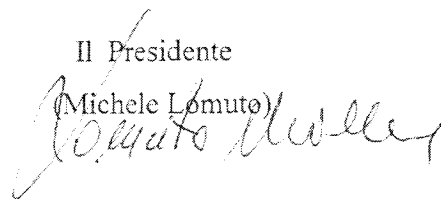 Il Presidente
(Michele Lomuto)
Lomuto Michele